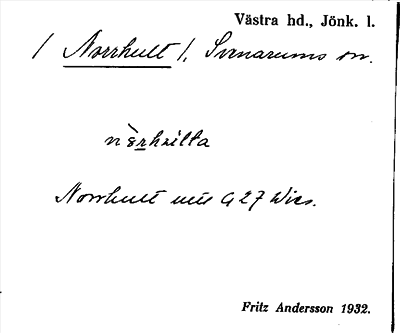 Västra hd., Jönk. l.
/ Norrhult /. Svenarums sn.
Norrhult G 27 Wies.
Fritz Andersson 1932.